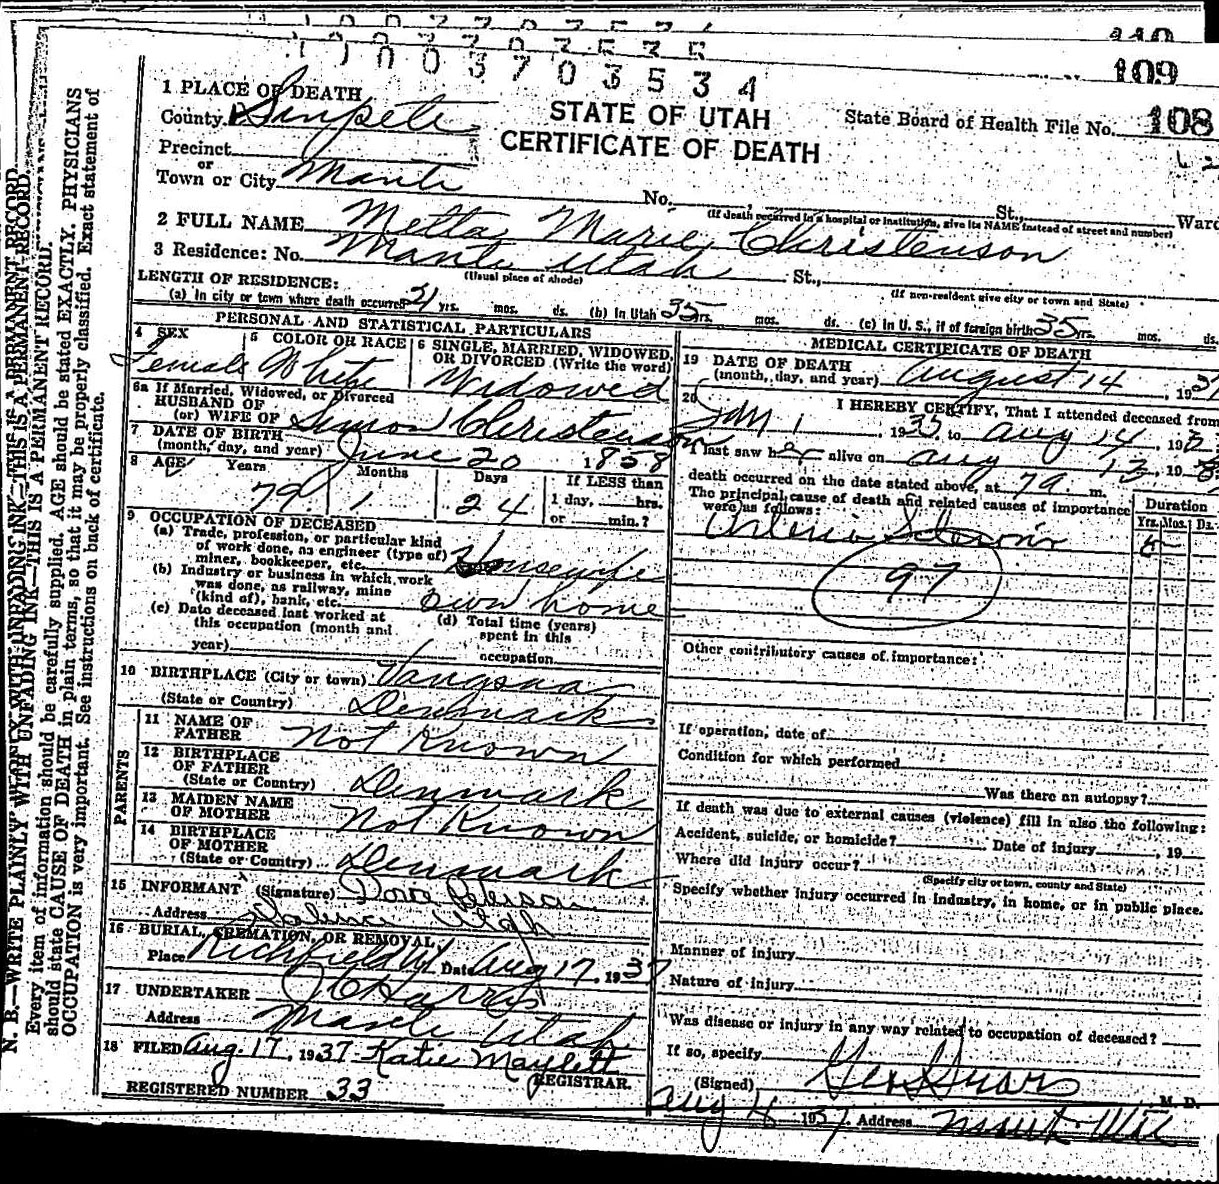 110
109
1003703534
108
1 PLACE OF DEATH
County Sanpete
STATE OF UTAH
CERTIFICATE OF DEATH
State Board of Health File No.
Precinct
or
Town or City Manti
No. , St., Ward
(If death occurred in a hospital or institution, give its NAME instead of street and number)
2 FULL NAME Metta Marie Christenson
3 Residence: No. Manti Utah St.,
(Usual place of abode)
(If non-resident give city or town and State)
LENGTH OF RESIDENCE:
(a) In city or town where death occurred 21 yrs. mos. ds. (b) In Utah 35 yrs. mos. ds. (c) In U. S., if of foreign birth 35 yrs. mos. ds.
PERSONAL AND STATISTICAL PARTICULARS
4 SEX
Female
5 COLOR OR RACE
White
6 SINGLE, MARRIED, WIDOWED, OR DIVORCED (Write the word)
Widowed
6a If Married, Widowed, or Divorced
HUSBAND OF
(or) WIFE OF Simon Christenson
7 DATE OF BIRTH
(month, day, and year) June 20 1858
8 AGE Years Months Days If LESS than
79 1 24 1 day, hrs.
or min.?
9 OCCUPATION OF DECEASED
(a) Trade, profession, or particular kind
of work done, as engineer (type of)
miner, bookkeeper, etc. Housewife
(b) Industry or business in which work
was done, as railway, mine
(kind of), bank, etc. own home
(c) Date deceased last worked at
this occupation (month and
year)
(d) Total time (years)
spent in this
occupation
10 BIRTHPLACE (City or town) Vangsaa
(State or Country) Denmark
PARENTS
11 NAME OF
FATHER Not Known
12 BIRTHPLACE
OF FATHER
(State or Country) Denmark
13 MAIDEN NAME
OF MOTHER Not Known
14 BIRTHPLACE
OF MOTHER
(State or Country) Denmark
15 INFORMANT (Signature)
Address Utah
16 BURIAL, CREMATION, OR REMOVAL,
Place Richfield Ut Date Aug 17 1937
17 UNDERTAKER Harrys
Address Manti Utah
18 FILED Aug. 17, 1937 Katie Maylett
REGISTRAR.
REGISTERED NUMBER 33
MEDICAL CERTIFICATE OF DEATH
19 DATE OF DEATH
(month, day, and year) August 14, 1937
20 I HEREBY CERTIFY, That I attended deceased from
Jan 1, 1935, to Aug 14, 193
I last saw her alive on Aug 13, 193
death occurred on the date stated above, at 7 a. m.
The principal cause of death and related causes of importance
were as follows:
Duration
Yrs. Mos. Ds.
Arterio
97
Other contributory causes of importance:
If operation, date of
Condition for which performed
Was there an autopsy?
If death was due to external causes (violence) fill in also the following:
Accident, suicide, or homicide? Date of injury , 19
Where did injury occur?
(Specify city or town, county and State)
Specify whether injury occurred in industry, in home, or in public place.
Manner of injury
Nature of injury
Was disease or injury in any way related to occupation of deceased?
If so, specify
(Signed) M. D.
Aug 1937. Address
N. B.—WRITE PLAINLY WITH UNFADING INK—THIS IS A PERMANENT RECORD.
Every item of information should be carefully supplied. AGE should be stated EXACTLY. PHYSICIANS
should state CAUSE OF DEATH in plain terms, so that it may be properly classified. Exact statement of
OCCUPATION is very important. See instructions on back of certificate.